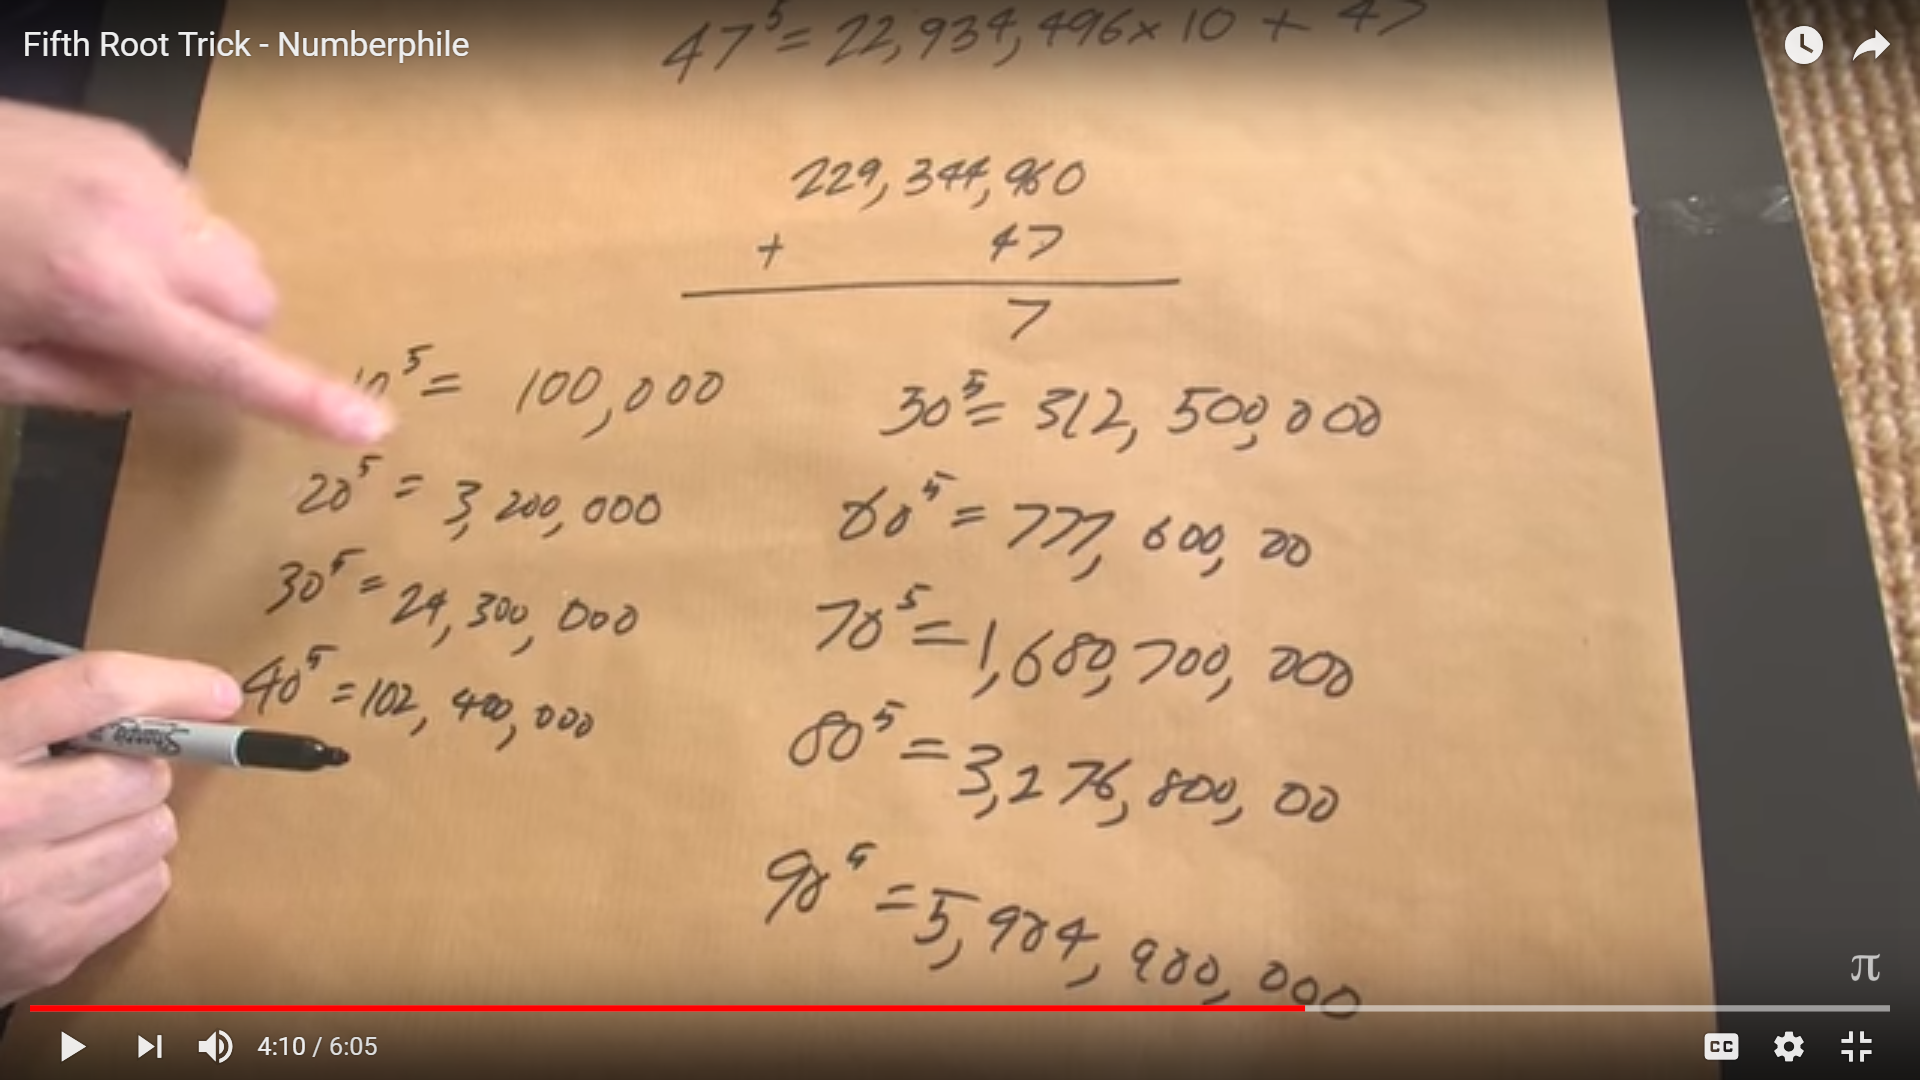 Fifth Root Trick - Numberphile
47⁵= 22,934,496x 10 + 47
229,344,960
+ 47
7
10⁵= 100,000
20⁵ = 3,200,000
30⁵ = 24,300,000
40⁵ = 102,400,000
30⁵= 312,500,000
60⁵= 777,600,00
70⁵= 1,680,700,000
80⁵= 3,276,800,00
90⁵= 5,904,900,000
π
Sharpie
4:10 / 6:05
CC